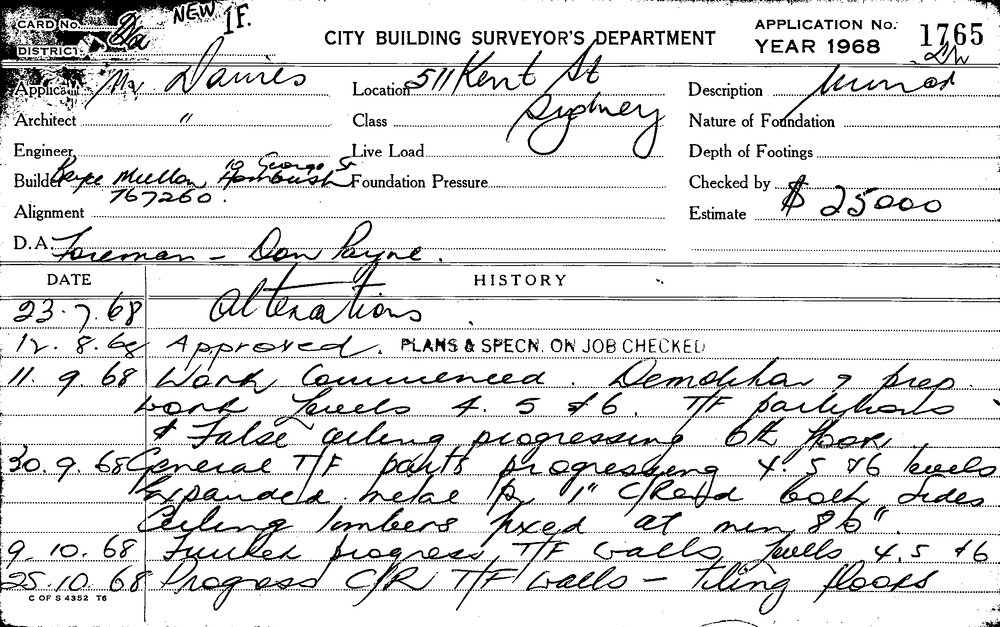 CARD No. 2/a NEW 1F.
DISTRICT
CITY BUILDING SURVEYOR'S DEPARTMENT
APPLICATION No. 1765
YEAR 1968
Applicant Mr Davies
Location 511 Kent St
Sydney
Description
Architect "
Class
Nature of Foundation
Engineer
Live Load
Depth of Footings
10 George St
Builder Mullon, Homebush
767260.
Foundation Pressure
Checked by
Alignment
Estimate $ 25000
D.A. Foreman - Don Payne.
DATE HISTORY
23.7.68 Alterations
12.8.68 Approved. PLANS & SPECN. ON JOB CHECKED
11.9.68 Work Commenced. Demolition & prep.
work Levels 4. 5 & 6. T/F partitions
& False ceiling progressing 6th floor.
30.9.68 General T/F parts progressing 4. 5 & 6 levels
Expanded metal 1" C/Rend both sides
Ceiling timbers fixed at min 8'6"
9.10.68 Further progress T/F walls, levels 4.5 & 6
25.10.68 Progress C/R T/F walls - Tiling floors
C OF S 4352 T6